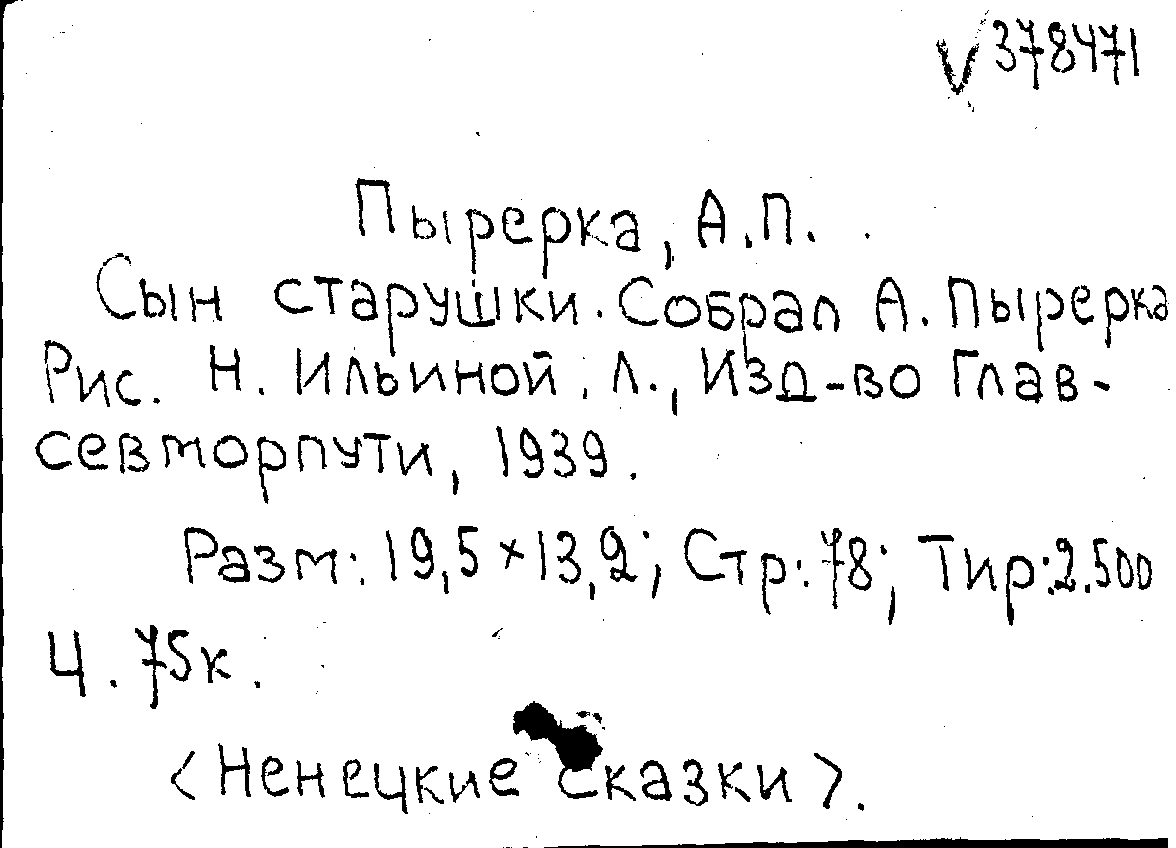 √378471
Пырерка, А.П.
Сын старушки. Собрал А. Пырерка
Рис. Н. Ильиной. Л., Изд-во Глав-
севморпути, 1939.
Разм: 19,5×13,2; Стр: 78; Тир: 2.500
Ц. 75к.
<Ненецкие сказки>.